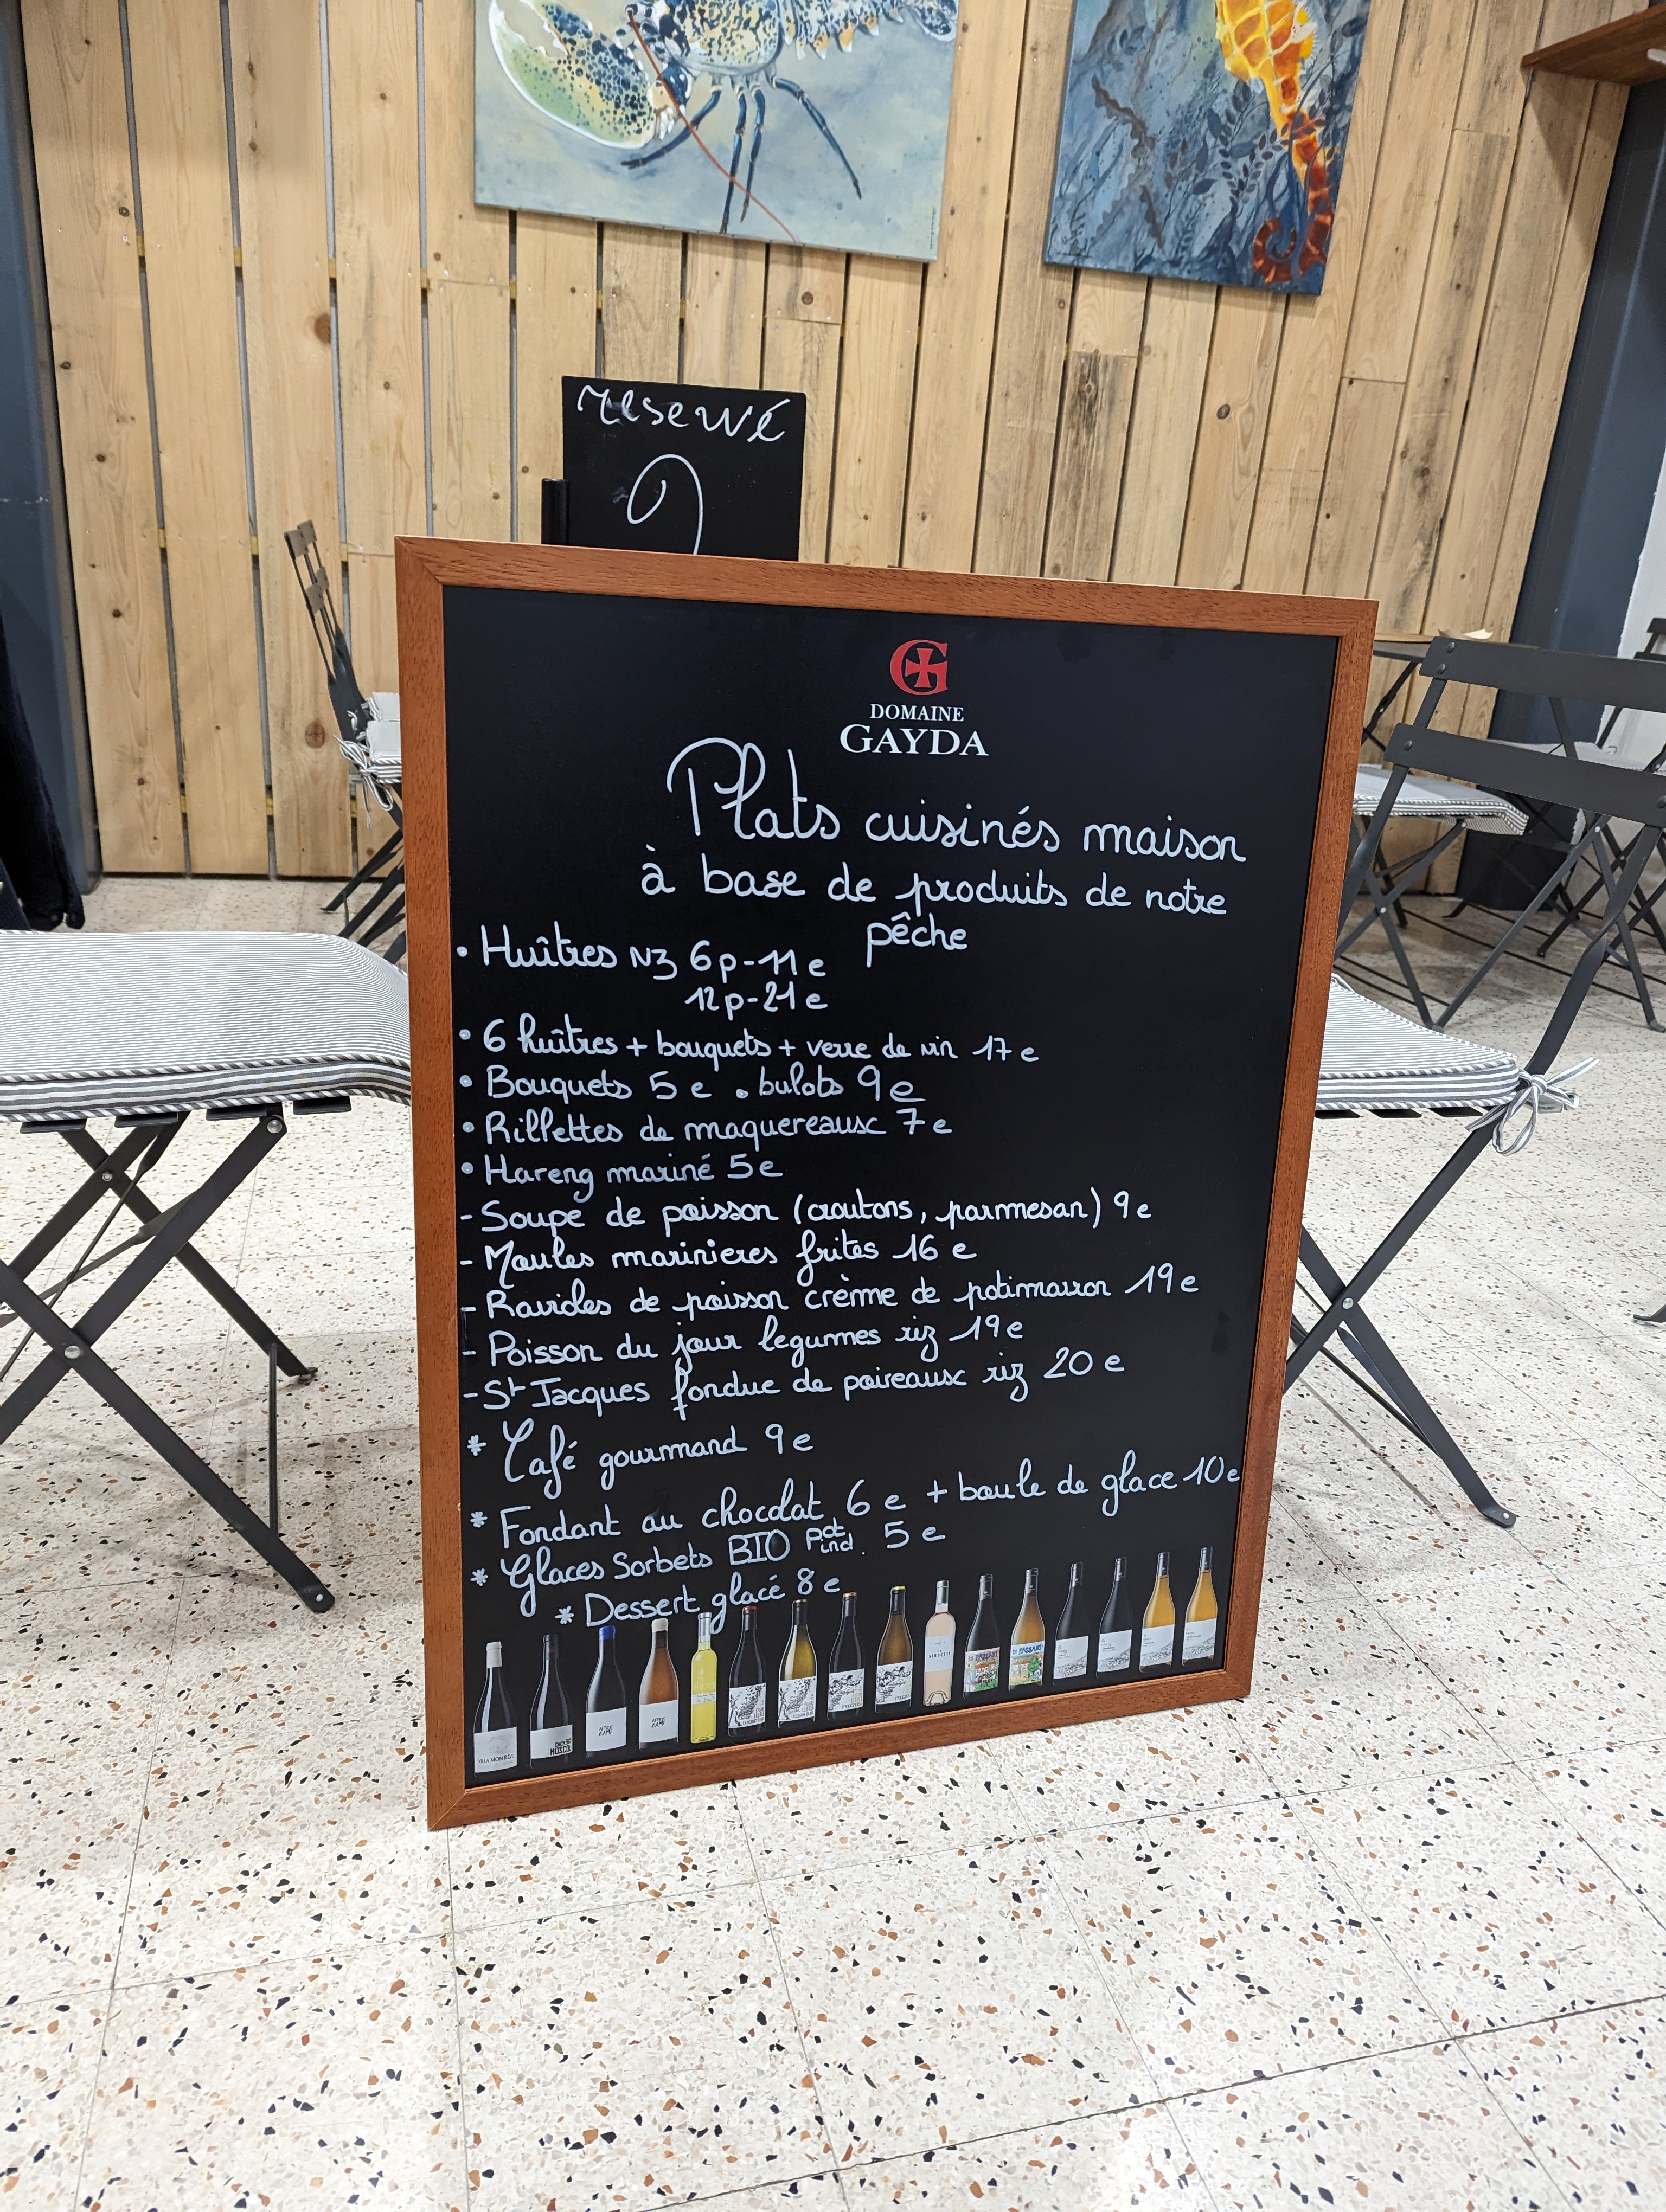 reservé
9
DOMAINE
GAYDA
Plats cuisinés maison
à base de produits de notre
pêche
• Huîtres N3 6p-11e
12p-21e
• 6 huîtres + bouquets + verre de vin 17e
• Bouquets 5e • bulots 9e
• Rillettes de maquereaux 7e
• Hareng mariné 5e
- Soupe de poisson (croutons, parmesan) 9e
- Moules marinieres frites 16e
- Ravioles de poisson crème de potimarron 19e
- Poisson du jour legumes riz 19e
- St Jacques fondue de poireaux riz 20e
* Café gourmand 9e
* Fondant au chocolat 6e + boule de glace 10e
* Glaces Sorbets BIO Pot ind. 5e
* Dessert glacé 8e
VILLA MON RÊVE
CHEMIN
MOSCOU